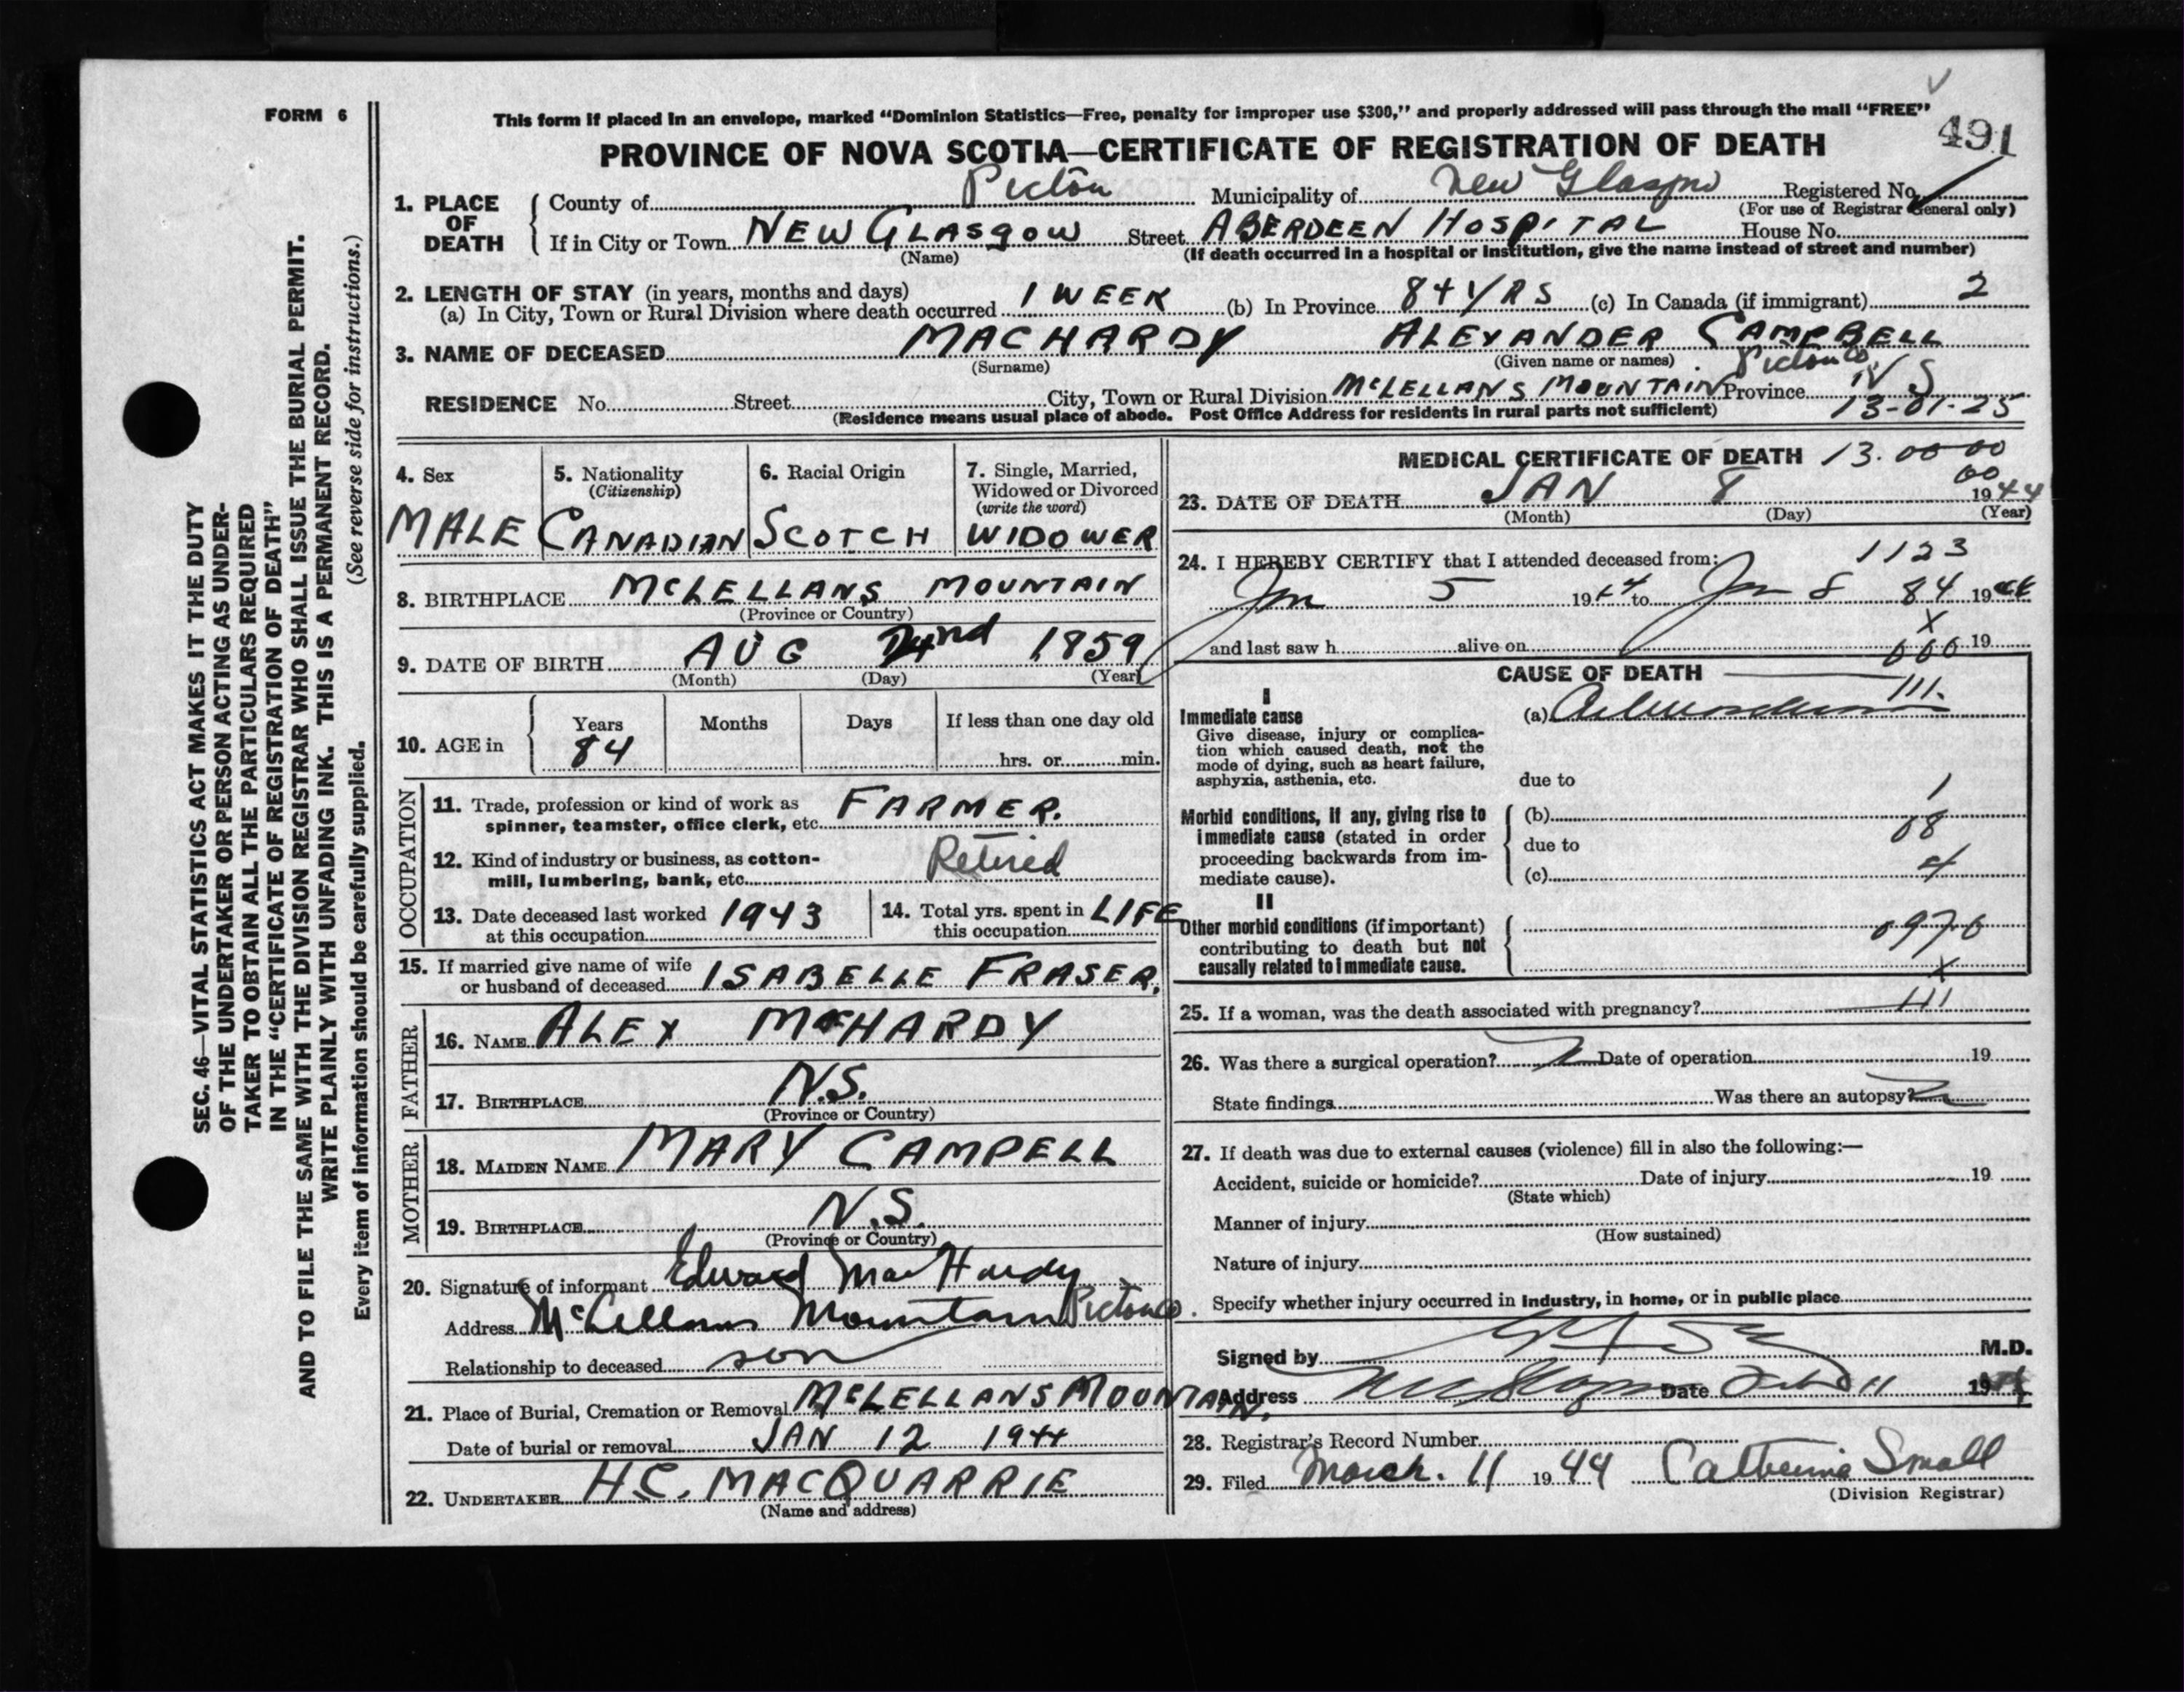 FORM 6
This form if placed in an envelope, marked “Dominion Statistics—Free, penalty for improper use $300,” and properly addressed will pass through the mail “FREE”
491
PROVINCE OF NOVA SCOTIA—CERTIFICATE OF REGISTRATION OF DEATH
1. PLACE OF DEATH County of Pictou Municipality of New Glasgow Registered No.
(For use of Registrar General only)
If in City or Town NEW GLASGOW Street ABERDEEN HOSPITAL House No.
(Name) (If death occurred in a hospital or institution, give the name instead of street and number)
2. LENGTH OF STAY (in years, months and days)
(a) In City, Town or Rural Division where death occurred 1 WEEK (b) In Province 84 YRS (c) In Canada (if immigrant) 2
3. NAME OF DECEASED MACHARDY ALEXANDER CAMPBELL
(Surname) (Given name or names) Pictou Co.
RESIDENCE No. Street City, Town or Rural Division McLELLANS MOUNTAIN Province N S
(Residence means usual place of abode. Post Office Address for residents in rural parts not sufficient) 13-01-25
4. Sex MALE
5. Nationality (Citizenship) CANADIAN
6. Racial Origin SCOTCH
7. Single, Married, Widowed or Divorced (write the word) WIDOWER
8. BIRTHPLACE McLELLANS MOUNTAIN
(Province or Country)
9. DATE OF BIRTH AUG 1859
(Month) (Day) (Year)
10. AGE in Years 84 Months Days If less than one day old
hrs. or min.
OCCUPATION
11. Trade, profession or kind of work as spinner, teamster, office clerk, etc. FARMER.
12. Kind of industry or business, as cotton-mill, lumbering, bank, etc. Retired
13. Date deceased last worked at this occupation 1943
14. Total yrs. spent in this occupation LIFE
15. If married give name of wife or husband of deceased ISABELLE FRASER.
FATHER
16. NAME ALEX McHARDY
17. BIRTHPLACE N.S.
(Province or Country)
MOTHER
18. MAIDEN NAME MARY CAMPELL
19. BIRTHPLACE N.S.
(Province or Country)
20. Signature of informant Edward MacHardy
Address McLellans Mountain Pictou Co.
Relationship to deceased son
21. Place of Burial, Cremation or Removal McLELLANS MOUNTAIN.
Date of burial or removal JAN 12 1944
22. UNDERTAKER H.C. MACQUARRIE
(Name and address)
MEDICAL CERTIFICATE OF DEATH 13.00 00
00
23. DATE OF DEATH JAN 8 1944
(Month) (Day) (Year)
24. I HEREBY CERTIFY that I attended deceased from: 1123
Jan 5 1944 to Jan 8 84 1944
X
and last saw h alive on 19
CAUSE OF DEATH
111.
I
Immediate cause
Give disease, injury or complication which caused death, not the mode of dying, such as heart failure, asphyxia, asthenia, etc.
(a)
due to
1
Morbid conditions, if any, giving rise to immediate cause (stated in order proceeding backwards from immediate cause).
(b)
08
due to
(c) 4
II
Other morbid conditions (if important) contributing to death but not causally related to immediate cause.
097.0
X
25. If a woman, was the death associated with pregnancy? 111
26. Was there a surgical operation? Date of operation 19
State findings Was there an autopsy?
27. If death was due to external causes (violence) fill in also the following:—
Accident, suicide or homicide? Date of injury 19
(State which)
Manner of injury
(How sustained)
Nature of injury
Specify whether injury occurred in industry, in home, or in public place
Signed by M.D.
Address New Glasgow Date 11 19
28. Registrar's Record Number
29. Filed March. 11 1944 Catherine Small
(Division Registrar)
SEC. 46—VITAL STATISTICS ACT MAKES IT THE DUTY
OF THE UNDERTAKER OR PERSON ACTING AS UNDER-
TAKER TO OBTAIN ALL THE PARTICULARS REQUIRED
IN THE “CERTIFICATE OF REGISTRATION OF DEATH”
AND TO FILE THE SAME WITH THE DIVISION REGISTRAR WHO SHALL ISSUE THE BURIAL PERMIT.
WRITE PLAINLY WITH UNFADING INK. THIS IS A PERMANENT RECORD.
Every item of information should be carefully supplied. (See reverse side for instructions.)